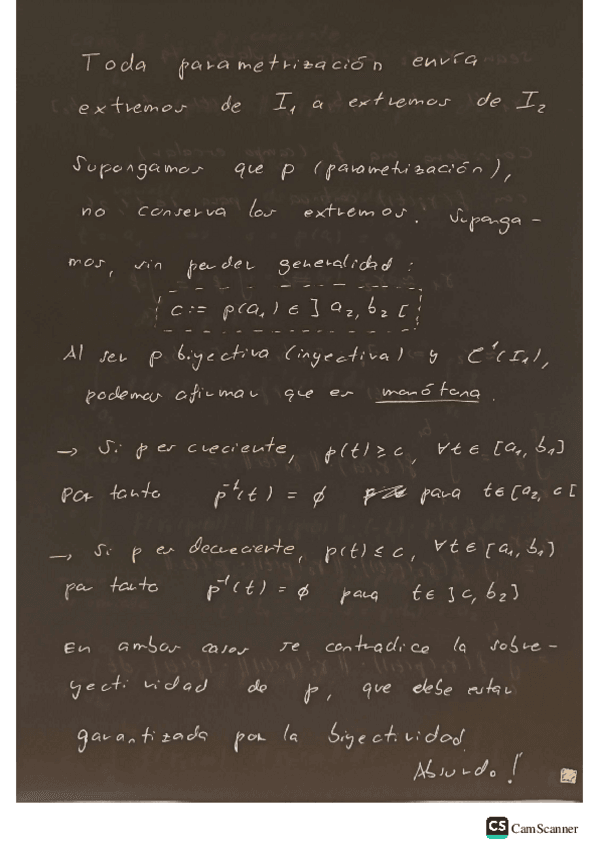 Toda parametrización envía
extremos de I₁ a extremos de I₂
Supongamos que p (parametrización),
no conserva los extremos. Suponga-
mos, sin perder generalidad:
c := p(a₁) ∈ ] a₂, b₂ [
Al ser p biyectiva (inyectiva) y C¹(I₁),
podemos afirmar que es monótona.
→ Si p es creciente, p(t) ≥ c, ∀t ∈ [a₁, b₁]
Por tanto p⁻¹(t) = ∅ para t ∈ [a₂, c[
→ Si p es decreciente, p(t) ≤ c, ∀t ∈ [a₁, b₁]
por tanto p⁻¹(t) = ∅ para t ∈ ]c, b₂]
En ambos casos se contradice la sobre-
yectividad de p, que debe estar
garantizada por la biyectividad.
Absurdo!
CS CamScanner